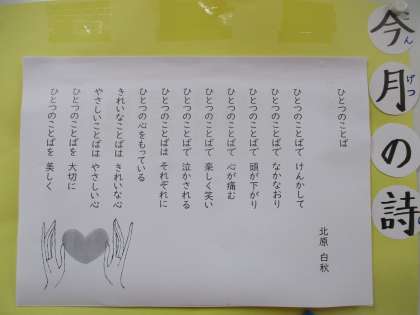 今月の詩
こん
げつ
し
ひとつのことば
北原 白秋
ひとつのことばで けんかして
ひとつのことばで なかなおり
ひとつのことばで 頭が下がり
ひとつのことばで 心が痛む
ひとつのことばで 楽しく笑い
ひとつのことばで 泣かされる
ひとつのことばは それぞれに
ひとつの心をもっている
きれいなことばは きれいな心
やさしいことばは やさしい心
ひとつのことばを 大切に
ひとつのことばを 美しく